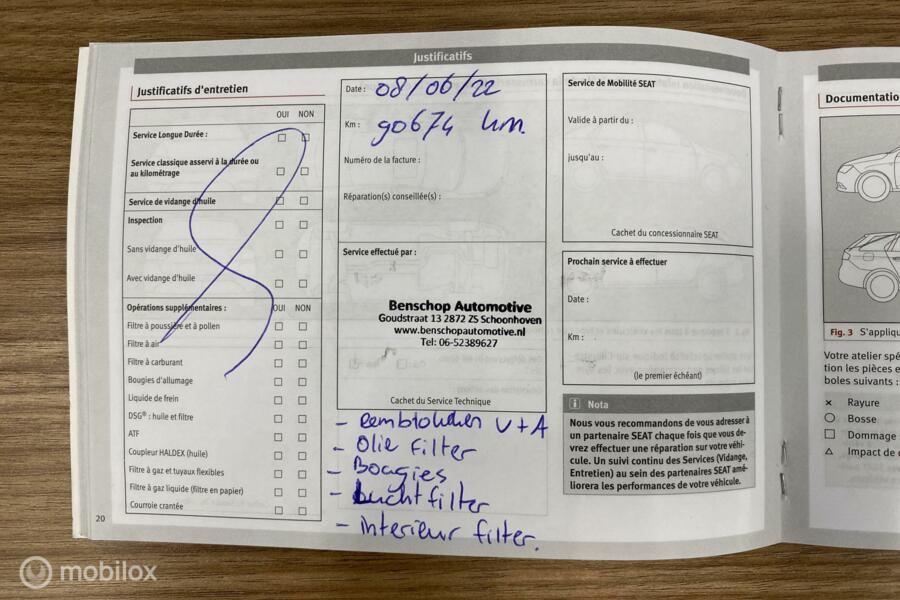 Justificatifs
Justificatifs d'entretien
OUI NON
Service Longue Durée :
Service classique asservi à la durée ou
au kilométrage
Service de vidange d'huile
Inspection
Sans vidange d'huile
Avec vidange d'huile
Opérations supplémentaires : OUI NON
Filtre à poussière et à pollen
Filtre à air
Filtre à carburant
Bougies d'allumage
Liquide de frein
DSG® : huile et filtre
ATF
Coupleur HALDEX (huile)
Filtre à gaz et tuyaux flexibles
Filtre à gaz liquide (filtre en papier)
Courroie crantée
20
Date : 08/06/22
Km : 90674 km.
Numéro de la facture :
Réparation(s) conseillée(s) :
Service effectué par :
Benschop Automotive
Goudstraat 13 2872 ZS Schoonhoven
www.benschopautomotive.nl
Tel: 06-52389627
Cachet du Service Technique
- Remblokken V+A
- Olie filter
- Bougies
- Luchtfilter
- interieur filter.
Service de Mobilité SEAT
Valide à partir du :
jusqu'au :
Cachet du concessionnaire SEAT
Prochain service à effectuer
Date :
Km :
(le premier échéant)
i Nota
Nous vous recommandons de vous adresser à
un partenaire SEAT chaque fois que vous de-
vrez effectuer une réparation sur votre véhi-
cule. Un suivi continu des Services (Vidange,
Entretien) au sein des partenaires SEAT amé-
liorera les performances de votre véhicule.
Documentatio
Fig. 3 S'appliqu
Votre atelier spé
tion les pièces e
boles suivants :
× Rayure
Bosse
Dommage
Impact de c
mobilox